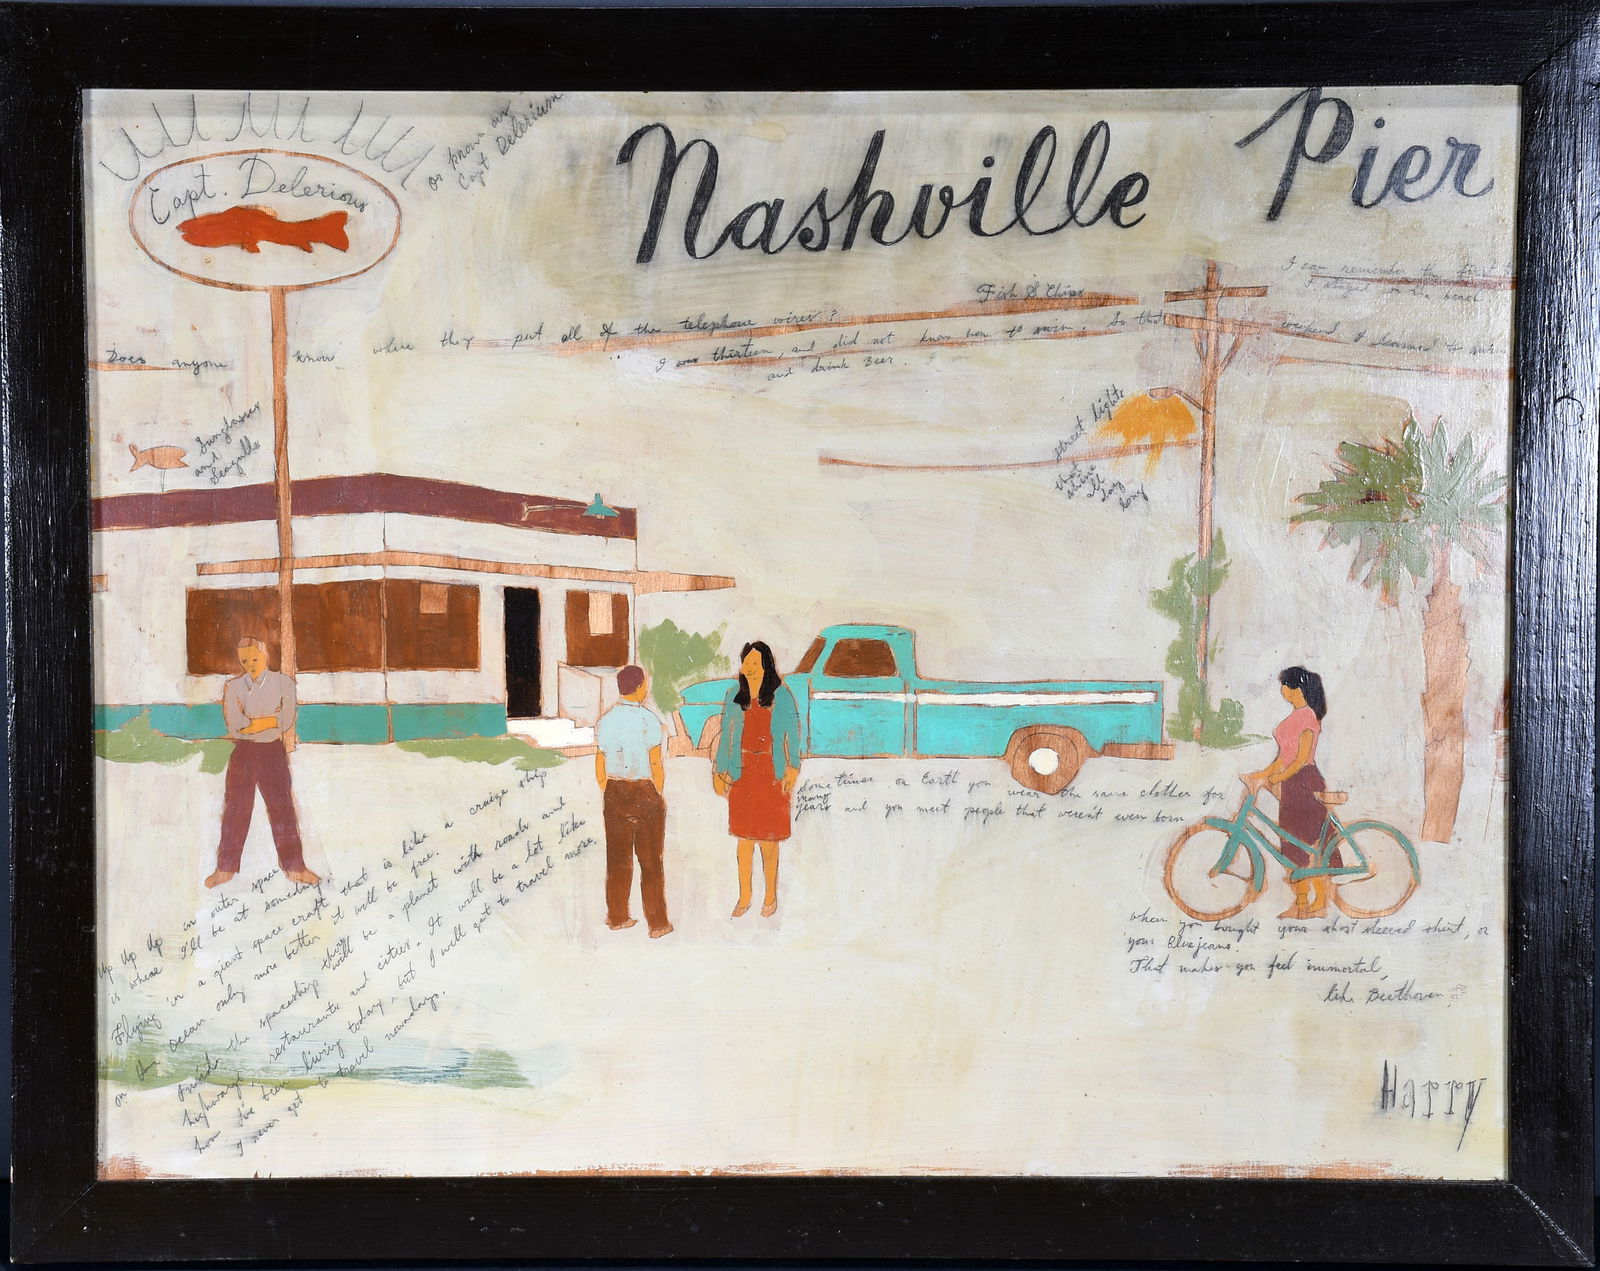 Nashville Pier
Capt. Delerious
or known as
Capt Delerium
Fish & Chips
Does anyone know where they put all of the telephone wires?
I was thirteen, and did not know how to swim. So that
weekend I learned to swim
and drink Beer.
I can remember the first
I stayed on the beach
Sunglasses
and
Seagulls
street lights
that
shine
all
day
long
Sometimes on Earth you wear the same clothes for
many
years and you meet people that weren't even born
when you bought your short sleeved shirt, or
your blue jeans.
That makes you feel immortal,
like Beethoven.
Up Up Up in outer space
is where I'll be at someday.
Flying in a giant space craft that is like a cruize ship
on the ocean only more better it will be free.
Inside the spaceship there will be a planet with roads and
highways, restaurants and cities. It will be a lot like
how I've been living today, but I will get to travel more.
I never get to travel nowadays.
Harry